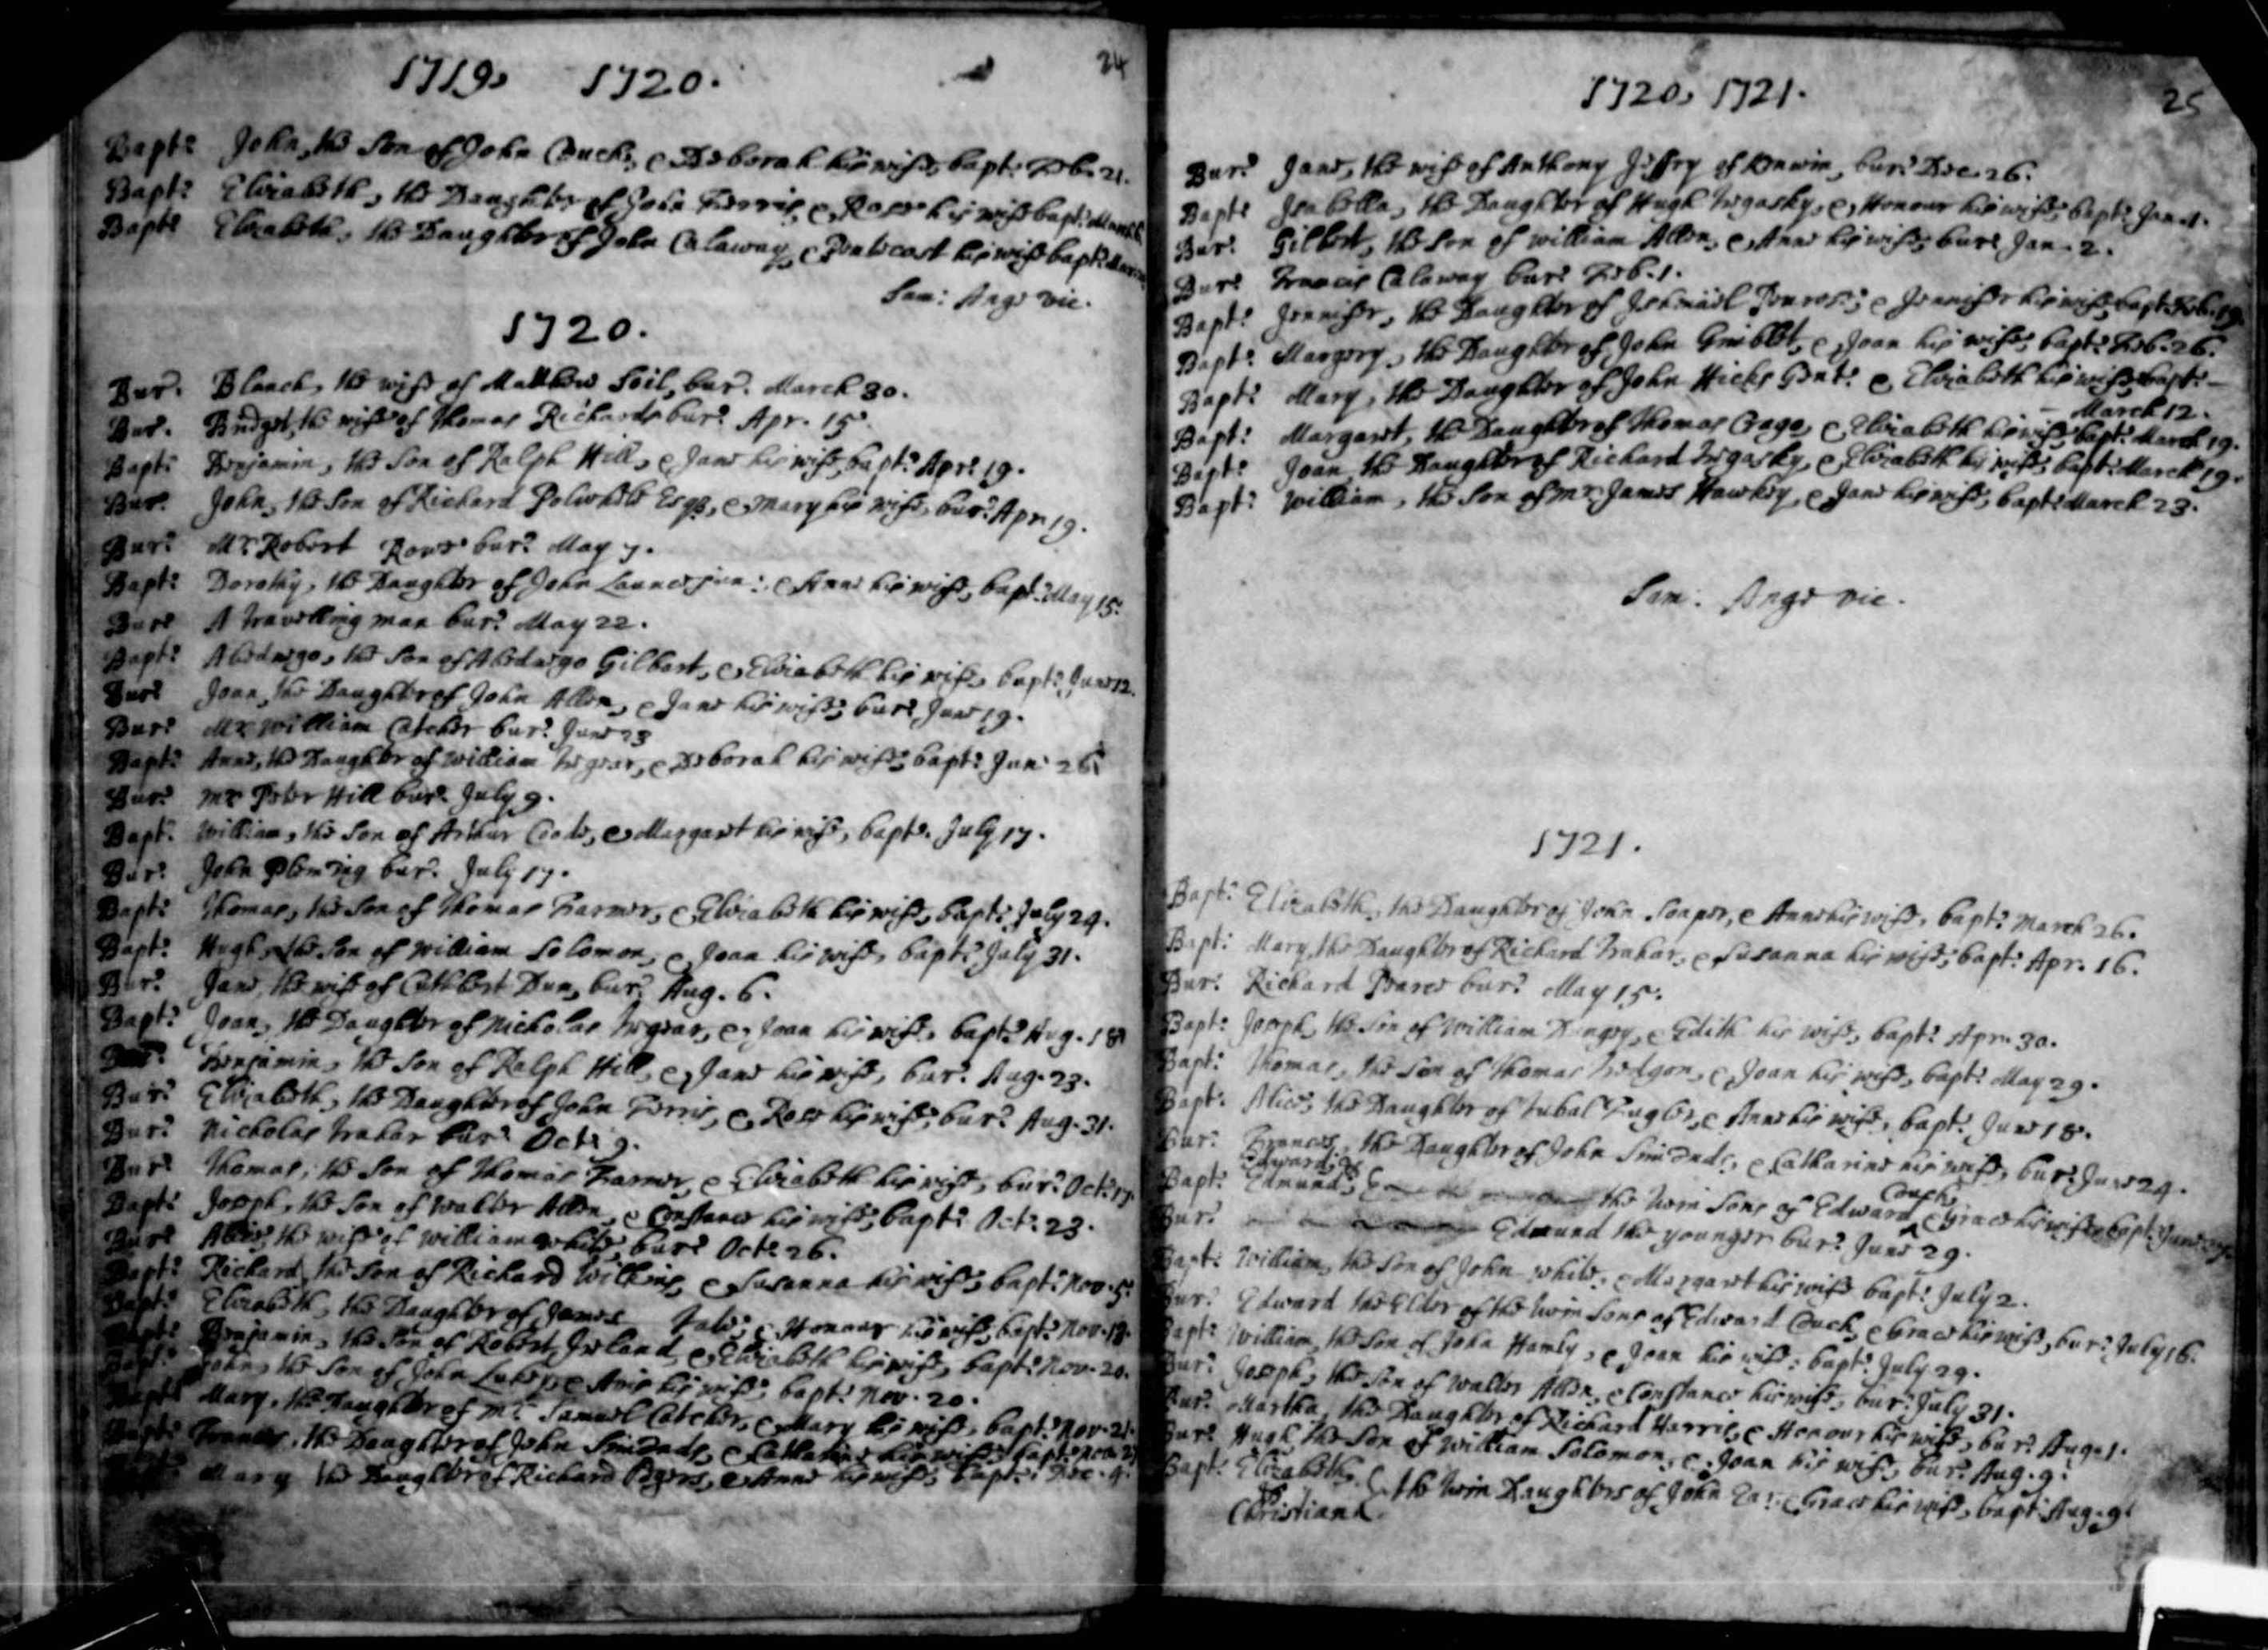 1719, 1720. 24
Bapt: John, the Son of John Couch, & Deborah his wife, bapt: Feb. 21.
Bapt: Elizabeth, the Daughter of John Ferris, & Rose his wife bapt:
Bapt: Elizabeth, the Daughter of John Calaway, & Pentecost his wife bapt:
Sam: Ange vic.
1720.
Bur: Blanch, the wife of Matthew Soil, bur: March 30.
Bur: Bridget, the wife of Thomas Richards bur: Apr. 15.
Bapt: Benjamin, the Son of Ralph Hill, & Jane his wife, bapt: Apr: 19.
Bur: John, the Son of Richard Polwhele Esqr, & Mary his wife, bur: Apr. 19.
Bur: Mr Robert Rowe bur: May 7.
Bapt: Dorothy, the Daughter of John Launce jun:, & Anne his wife, bapt: May 15.
Bur: A travelling man bur: May 22.
Bapt: Abednego, the Son of Abednego Gilbert, & Elizabeth his wife, bapt: June 12.
Bur: Joan, the Daughter of John Allen, & Jane his wife, bur: June 19.
Bur: Mr William Catcher bur: June 23
Bapt: Anne, the Daughter of William Tregear, & Deborah his wife, bapt: Jun: 26.
Bur: Mr Peter Hill bur: July 9.
Bapt: William, the Son of Arthur Coode, & Margaret his wife, bapt: July 17.
Bur: John bur: July 17.
Bapt: Thomas, the Son of Thomas Farmer, & Elizabeth his wife, bapt: July 24.
Bapt: Hugh, the Son of William Solomon, & Joan his wife, bapt: July 31.
Bur: Jane, the wife of Cuthbert Dun, bur: Aug. 6.
Bapt: Joan, the Daughter of Nicholas Tregear, & Joan his wife, bapt: Aug. 18
Bur: Benjamin, the Son of Ralph Hill, & Jane his wife, bur: Aug. 23.
Bur: Elizabeth, the Daughter of John Ferris, & Rose his wife, bur: Aug. 31.
Bur: Nicholas Trahar bur: Oct: 9.
Bur: Thomas, the Son of Thomas Farmer, & Elizabeth his wife, bur: Oct: 17.
Bapt: Joseph, the Son of Walter Allen, & Constance his wife, bapt: Oct: 23.
Bur: Alice, the wife of William White, bur: Oct: 26.
Bapt: Richard, the Son of Richard Wilkins, & Susanna his wife, bapt: Nov. 5.
Bapt: Elizabeth, the Daughter of James & Honour his wife, bapt: Nov. 18.
Bapt: Benjamin, the Son of Robert Ireland, & Elizabeth his wife, bapt: Nov. 20.
Bapt: John, the Son of John Lukey, & Avis his wife, bapt: Nov. 20.
Bapt: Mary, the Daughter of Mr Samuel Catcher, & Mary his wife, bapt: Nov. 21.
Bapt: Frances, the Daughter of John Simonds, & Catharine his wife, bapt: Nov. 27
Mary the Daughter of Richard Rogers, & Anne his wife, bapt: Dec. 4.
1720, 1721. 25
Bur: Jane, the wife of Anthony Jeffry of Kenwin, bur: Dec. 26.
Bapt: Isabella, the Daughter of Hugh Tregasky, & Honour his wife, bapt: Jan. 1.
Bur: Gilbert, the Son of William Allen, & Anne his wife, bur: Jan. 2.
Bur: Francis Calaway bur: Feb. 1.
Bapt: Jennifer, the Daughter of Ishmael Penrose, & Jennifer his wife, bapt: Feb. 19.
Bapt: Margery, the Daughter of John Gmiblet, & Joan his wife, bapt: Feb. 26.
Bapt: Mary, the Daughter of John Hicks Gent: & Elizabeth his wife, bapt: —
— March 12.
Bapt: Margaret, the Daughter of Thomas Crago, & Elizabeth his wife, bapt: March 19.
Bapt: Joan, the Daughter of Richard Tregasky, & Elizabeth his wife, bapt: March 19.
Bapt: William, the Son of Mr James Hawkey, & Jane his wife, bapt: March 23.
Sam: Ange vic.
1721.
Bapt: Elizabeth, the Daughter of John Soaper, & Anne his wife, bapt: March 26.
Bapt: Mary, the Daughter of Richard Trahar, & Susanna his wife, bapt: Apr. 16.
Bur: Richard Pearce bur: May 15.
Bapt: Joseph, the Son of William Dungey, & Edith his wife, bapt: Apr. 30.
Bapt: Thomas, the Son of Thomas Tredgon, & Joan his wife, bapt: May 29.
Bapt: Alice, the Daughter of Tubal Fugler, & Anne his wife, bapt: June 18.
Bur: Frances, the Daughter of John Simonds, & Catharine his wife, bur: June 24.
Bapt: Edward, & Edmund, the twin Sons of Edward Couch, & Grace his wife, bapt: June
Bur: Edmund the younger bur: June 29.
Bapt: William, the Son of John White, & Margaret his wife bapt: July 2.
Bur: Edward the Elder of the twin Sons of Edward Couch, & Grace his wife, bur: July 16.
Bapt: William, the Son of John Hamly, & Joan his wife, bapt: July 29.
Bur: Joseph, the Son of Walter Allen, & Constance his wife, bur: July 31.
Bur: Martha, the Daughter of Richard Harris, & Honour his wife, bur: Aug. 1.
Bur: Hugh, the Son of William Solomon, & Joan his wife, bur: Aug. 9.
Bapt: Elizabeth, & the twin Daughters of John & Grace his wife, bapt: Aug. 9.
Christiana